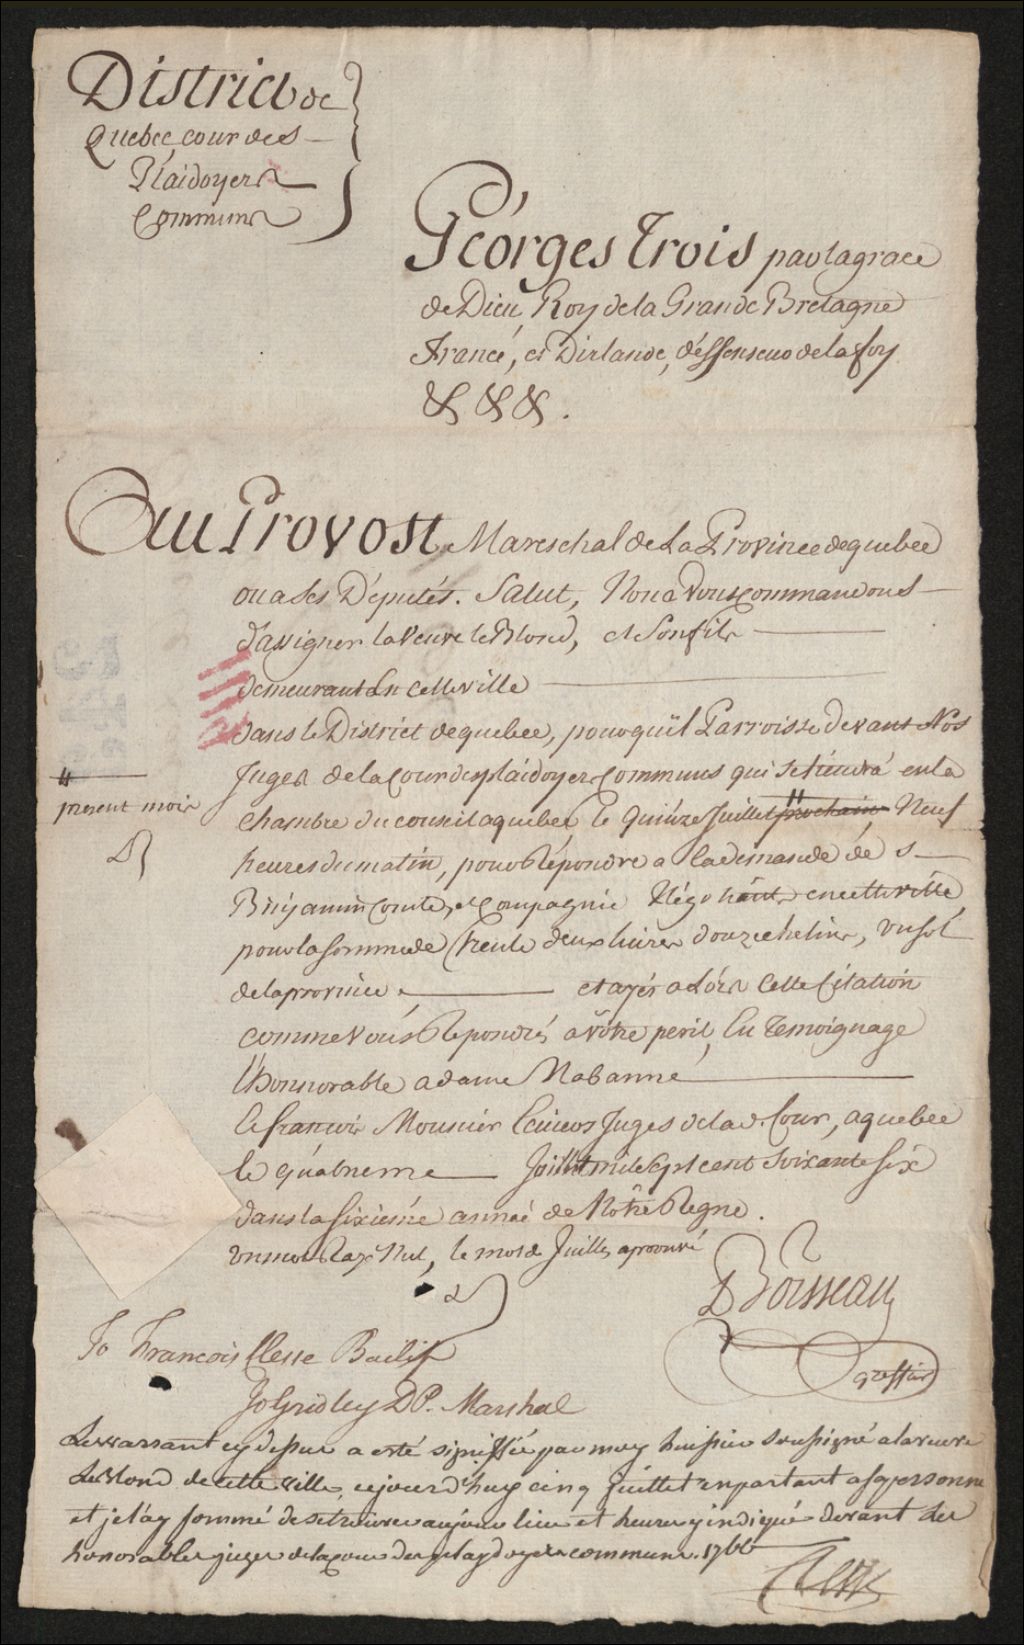 District de
Quebec, cour des
Plaidoyers
Communs
Georges Trois par la grace
de Dieu, Roy de la Grande Bretagne
France, et Dirlande, déffenseur de la foy
&& &.
Au Provost Mareschal de La Province de quebec
ou a ses Députés. Salut, Nous Vous commandons
d'assigner la Veuve le Blond, et Son fils
demeurant En cette ville
dans le District de quebec, pour quil Parroisse devant Nos
Juges de la Cour des plaidoyers Communs qui se tiendra en la
present mois
chambre du conseil a quebec, le Quinze Juillet prochain Neuf
heures du matin, pour Répondre a la demande de s
Binjamin Comte, et Compagnie Négotiant en cette ville
pour la somme de trente deux livres douze chelins, un sol
de la province, et ayés a Lors Cette Citation
comme Vous Repondrés a vôtre peril, En Temoignage
l'honnorable adame Mabanne
& francois Mounier Ecuiers Juges de la d. Cour, a quebec
le quatrieme Juillet mil Sept cent Soixante Six
dans la Sixiéme année de Nôtre Regne.
un mot Rayé Nul, le mot de Juillet aprouvé
DBoisseau
greffier
To Francois Clesse Bailif
Jo Gridley D P. Marshal
Le warrant cy dessus a esté signiffié par moy huissier soussigné a la veuve
LeBlond de cette ville, cejourd'huy cinq Juillet en parlant a sa personne
et je l'ay sommé de se trouver au jour lieu et heure y indiqué devant les
honorables juges de la cour des playdoyers communs. 1766
Clesse